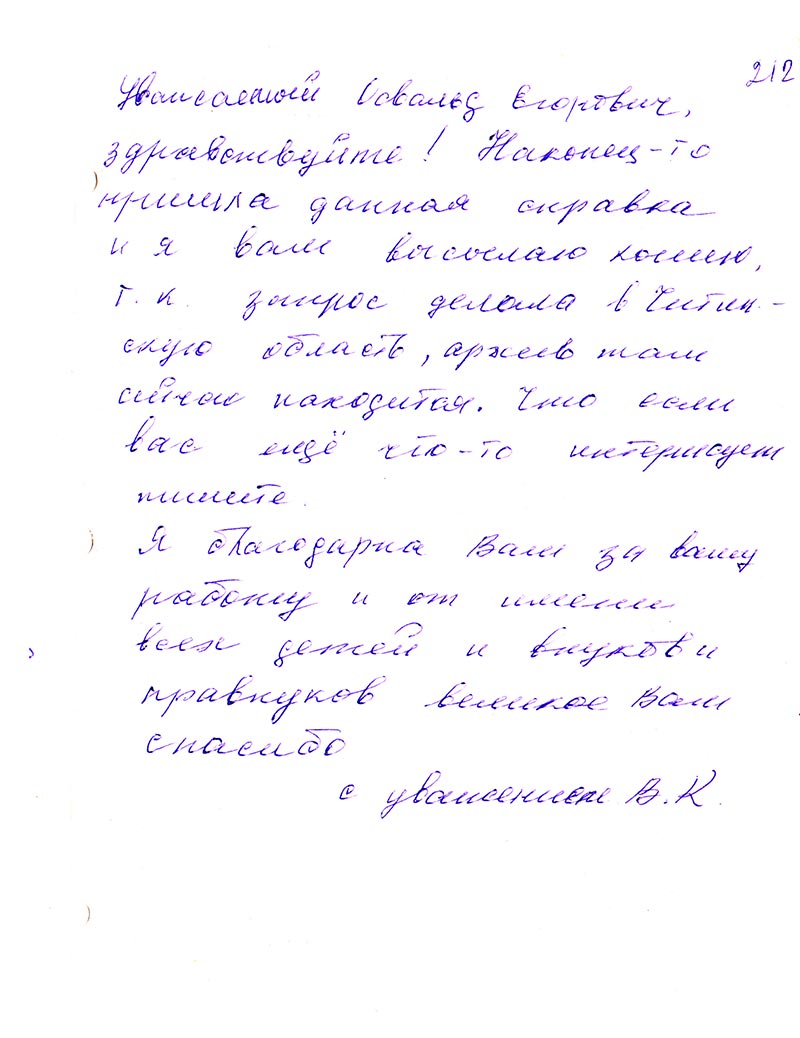 212
Уважаемый Освальд Егорович,
здравствуйте! Наконец-то
пришла данная справка
и я вам высылаю копию,
т.к. запрос делала в Читин-
скую область, архив там
сейчас находится. Что если
вас ещё что-то интересует
пишите.
Я благодарна Вам за вашу
работу и от имени
всех детей и внуков и
правнуков великое Вам
спасибо
с уважением В.К.